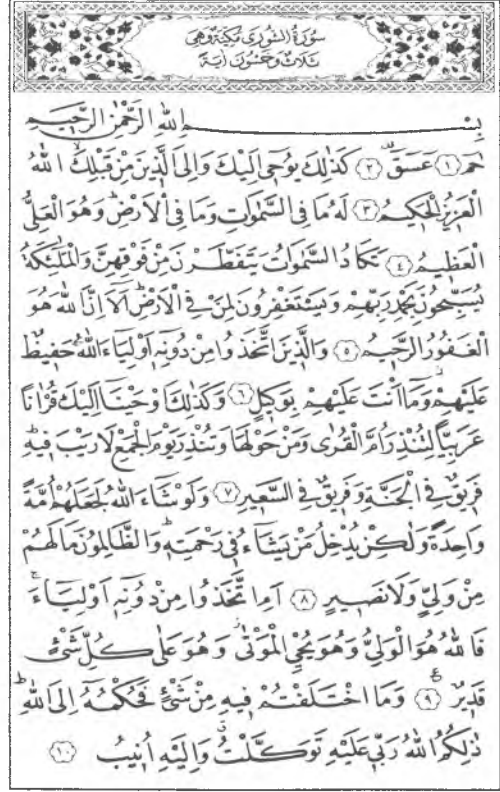 سُورَةُ الشُّورٰى مَكِّيَّةٌ وَهِيَ
ثَلَاثٌ وَخَمْسُونَ اٰيَةً
بِسْمِ اللهِ الرَّحْمٰنِ الرَّحِيمِ
حٰمٓ ﴿١﴾ عٓسٓقٓ ﴿٢﴾ كَذٰلِكَ يُوحِٓى اِلَيْكَ وَاِلَى الَّذِينَ مِنْ قَبْلِكَۙ اللهُ
الْعَزِيزُ الْحَكِيمُ ﴿٣﴾ لَهُ مَا فِى السَّمٰوَاتِ وَمَا فِى الْاَرْضِۜ وَهُوَ الْعَلِىُّ
الْعَظِيمُ ﴿٤﴾ تَكَادُ السَّمٰوَاتُ يَتَفَطَّرْنَ مِنْ فَوْقِهِنَّ وَالْمَلٰٓئِكَةُ
يُسَبِّحُونَ بِحَمْدِ رَبِّهِمْ وَيَسْتَغْفِرُونَ لِمَنْ فِى الْاَرْضِۜ اَلَٓا اِنَّ اللهَ هُوَ
الْغَفُورُ الرَّحِيمُ ﴿٥﴾ وَالَّذِينَ اتَّخَذُوا مِنْ دُونِهِٓ اَوْلِيَٓاءَ اللهُ حَفِيظٌ
عَلَيْهِمْۘ وَمَٓا اَنْتَ عَلَيْهِمْ بِوَكِيلٍ ﴿٦﴾ وَكَذٰلِكَ اَوْحَيْنَٓا اِلَيْكَ قُرْاٰنًا
عَرَبِيًّا لِتُنْذِرَ اُمَّ الْقُرٰى وَمَنْ حَوْلَهَا وَتُنْذِرَ يَوْمَ الْجَمْعِ لَا رَيْبَ فِيهِۜ
فَرِيقٌ فِى الْجَنَّةِ وَفَرِيقٌ فِى السَّعِيرِ ﴿٧﴾ وَلَوْ شَٓاءَ اللهُ لَجَعَلَهُمْ اُمَّةً
وَاحِدَةً وَلٰكِنْ يُدْخِلُ مَنْ يَشَٓاءُ فِى رَحْمَتِهِۜ وَالظَّالِمُونَ مَا لَهُمْ
مِنْ وَلِىٍّ وَلَا نَصِيرٍ ﴿٨﴾ اَمِ اتَّخَذُوا مِنْ دُونِهِٓ اَوْلِيَٓاءَۚ
فَاللهُ هُوَ الْوَلِىُّ وَهُوَ يُحْيِ الْمَوْتٰىۘ وَهُوَ عَلٰى كُلِّ شَىْءٍ
قَدِيرٌ ﴿٩﴾ وَمَا اخْتَلَفْتُمْ فِيهِ مِنْ شَىْءٍ فَحُكْمُهُٓ اِلَى اللهِۜ
ذٰلِكُمُ اللهُ رَبِّى عَلَيْهِ تَوَكَّلْتُۗ وَاِلَيْهِ اُنِيبُ ﴿١٠﴾